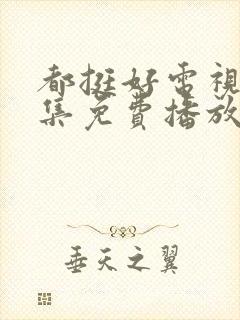 都挺好電視
集免費播放
垂天之翼